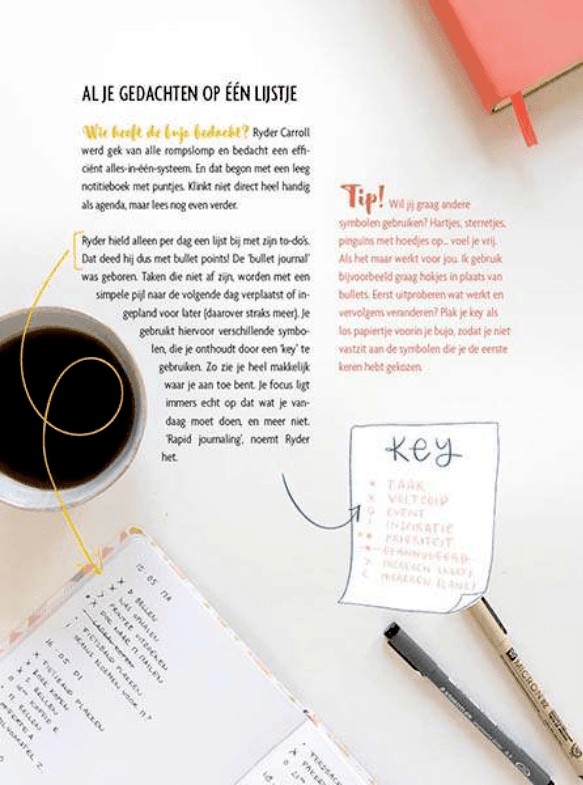 AL JE GEDACHTEN OP ÉÉN LIJSTJE
Wie heeft de bujo bedacht? Ryder Carroll
werd gek van alle rompslomp en bedacht een effi-
ciënt alles-in-één-systeem. En dat begon met een leeg
notitieboek met puntjes. Klinkt niet direct heel handig
als agenda, maar lees nog even verder.
Ryder hield alleen per dag een lijst bij met zijn to-do's.
Dat deed hij dus met bullet points! De 'bullet journal'
was geboren. Taken die niet af zijn, worden met een
simpele pijl naar de volgende dag verplaatst of in-
gepland voor later (daarover straks meer). Je
gebruikt hiervoor verschillende symbo-
len, die je onthoudt door een 'key' te
gebruiken. Zo zie je heel makkelijk
waar je aan toe bent. Je focus ligt
immers echt op dat wat je van-
daag moet doen, en meer niet.
'Rapid journaling', noemt Ryder
het.
Tip! Wil jij graag andere
symbolen gebruiken? Hartjes, sterretjes,
pinguïns met hoedjes op... voel je vrij.
Als het maar werkt voor jou. Ik gebruik
bijvoorbeeld graag hokjes in plaats van
bullets. Eerst uitproberen wat werkt en
vervolgens veranderen? Plak je key als
los papiertje voorin je bujo, zodat je niet
vastzit aan de symbolen die je de eerste
keren hebt gekozen.
KEY
TAAK
X VOLTOOID
O EVENT
! INSPIRATIE
PRIORITEIT
GEANNULEERD
15.05
BELLEN
PRINTER UITZOEKEN
FICTIEBAND PLAKKEN
16.05.01
BELLEN
MICRON 02